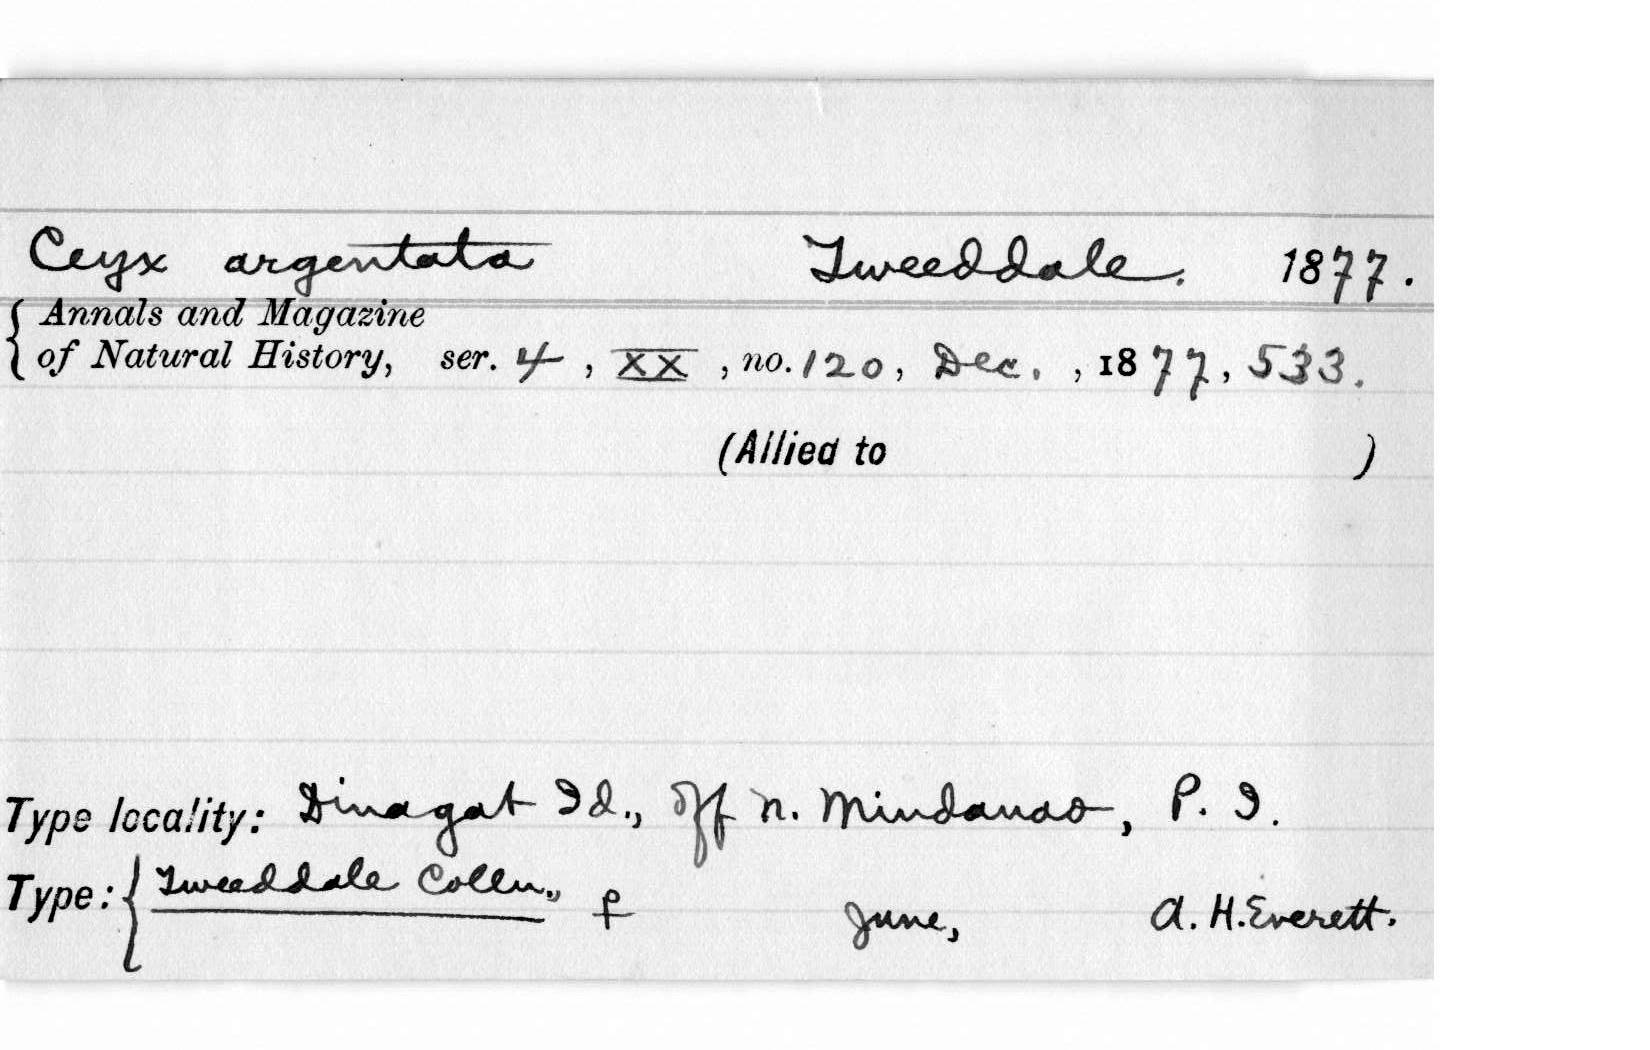 Ceyx argentata Tweeddale. 1877.
{ Annals and Magazine
of Natural History, ser. 4, XX, no. 120, Dec., 1877, 533.
(Allied to )
Type locality: Dinagat Id., off n. Mindanao, P. I.
Type: { Tweeddale Colln., ♀ June, A. H. Everett.